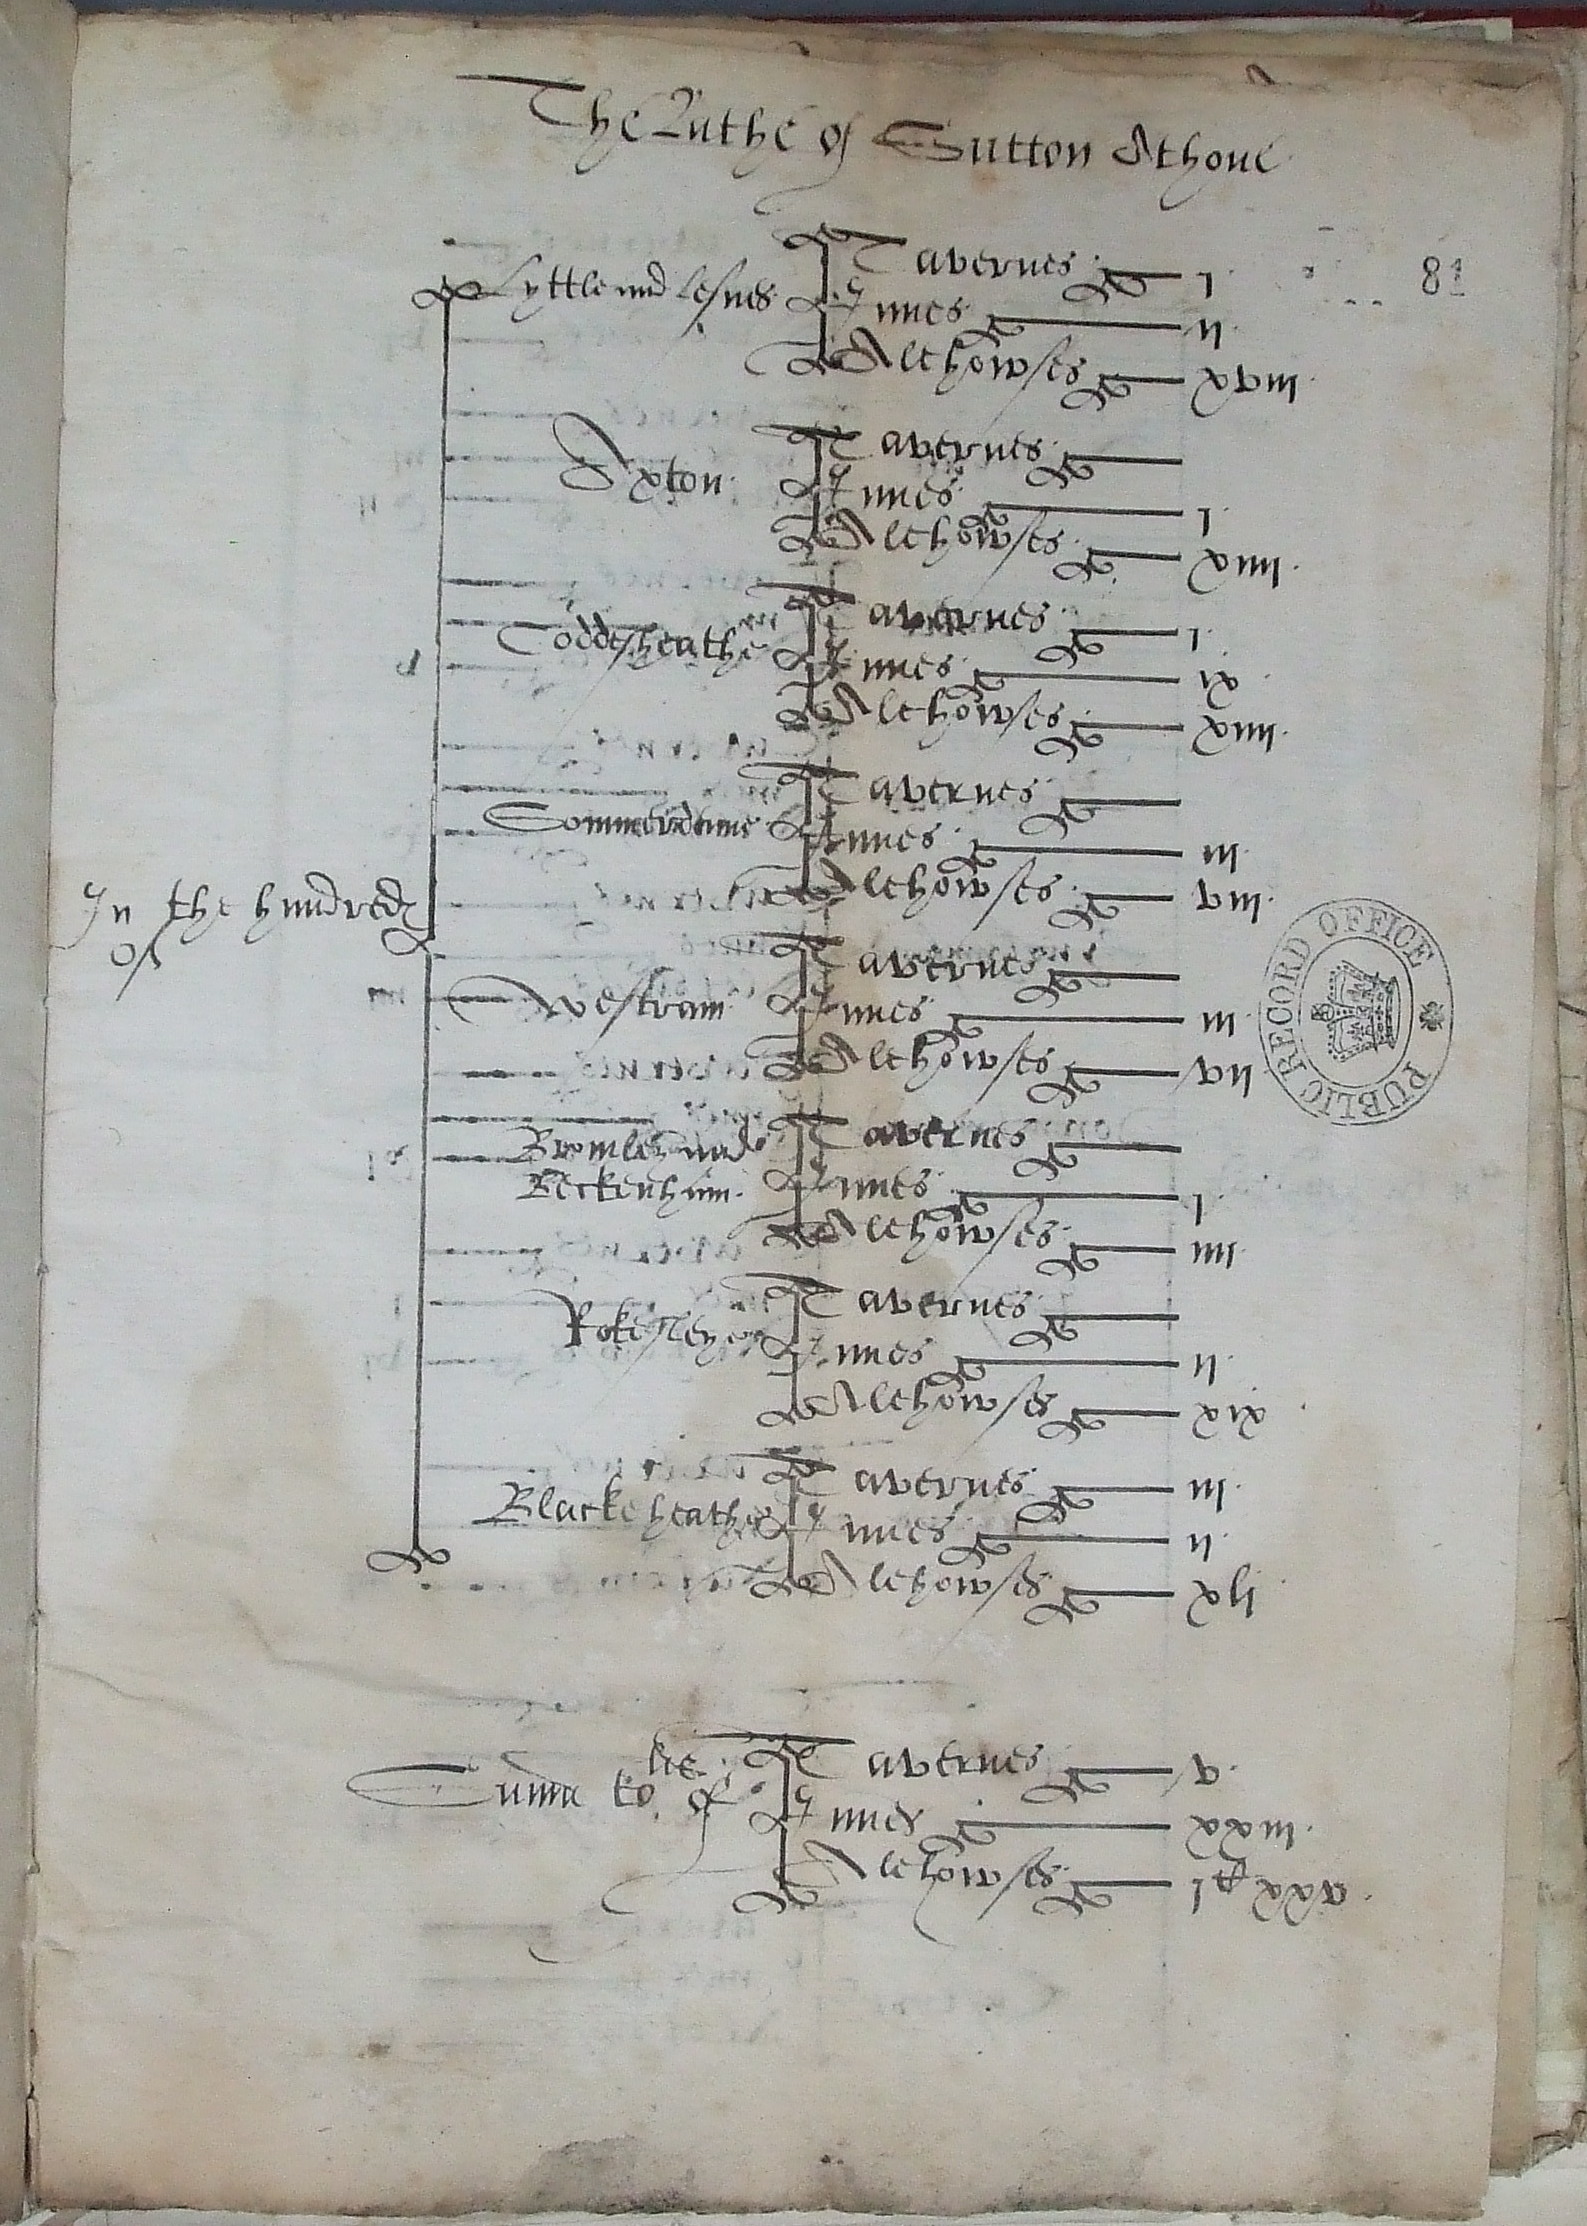 The Lathe of Sutton Athone
81
Lyttle and Lesnes
Tavernes i
Innes ii
Alehowses xviii
Axton
Tavernes
Innes i
Alehowses xiiii
Coddesheathe
Tavernes i
Innes ix
Alehowses xiiii
Sommerdenne
Tavernes
Innes iii
Alehowses viii
In the hundredes
of
Westram
Tavernes
Innes iii
Alehowses vii
Bromley and
Beckenham
Tavernes
Innes i
Alehowses iiii
Rokesleye
Tavernes
Innes ii
Alehowses xix
Blackeheathe
Tavernes iii
Innes ii
Alehowses xli
Suma to of
Tavernes v
Innes xxiii
Alehowses xxv
PUBLIC RECORD OFFICE